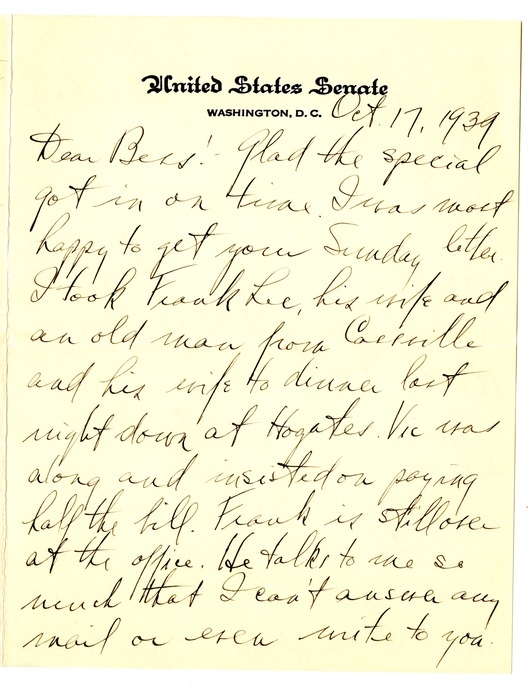 United States Senate
WASHINGTON, D. C. Oct. 17, 1939
Dear Bess:- Glad the special
got in on time. I was most
happy to get your Sunday letter.
I took Frank Lee, his wife and
an old man from Cassville
and his wife to dinner last
night down at Hogates. Vic was
along and insisted on paying
half the bill. Frank is still over
at the office. He talks to me so
much that I can't answer any
mail or even write to you.